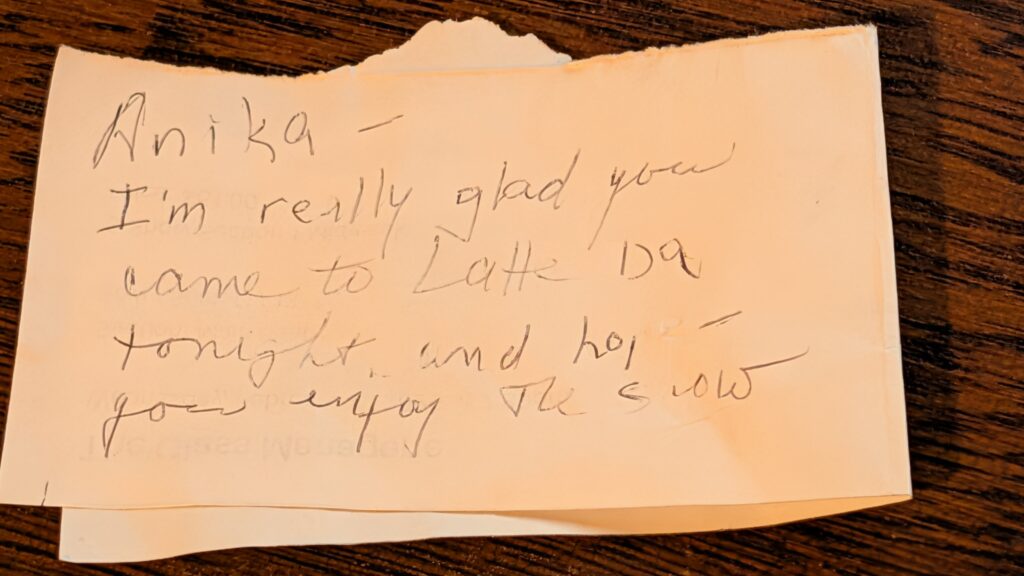 Anika –
I'm really glad you
came to Latte Da
tonight, and
you enjoy the show
The Glass Menagerie